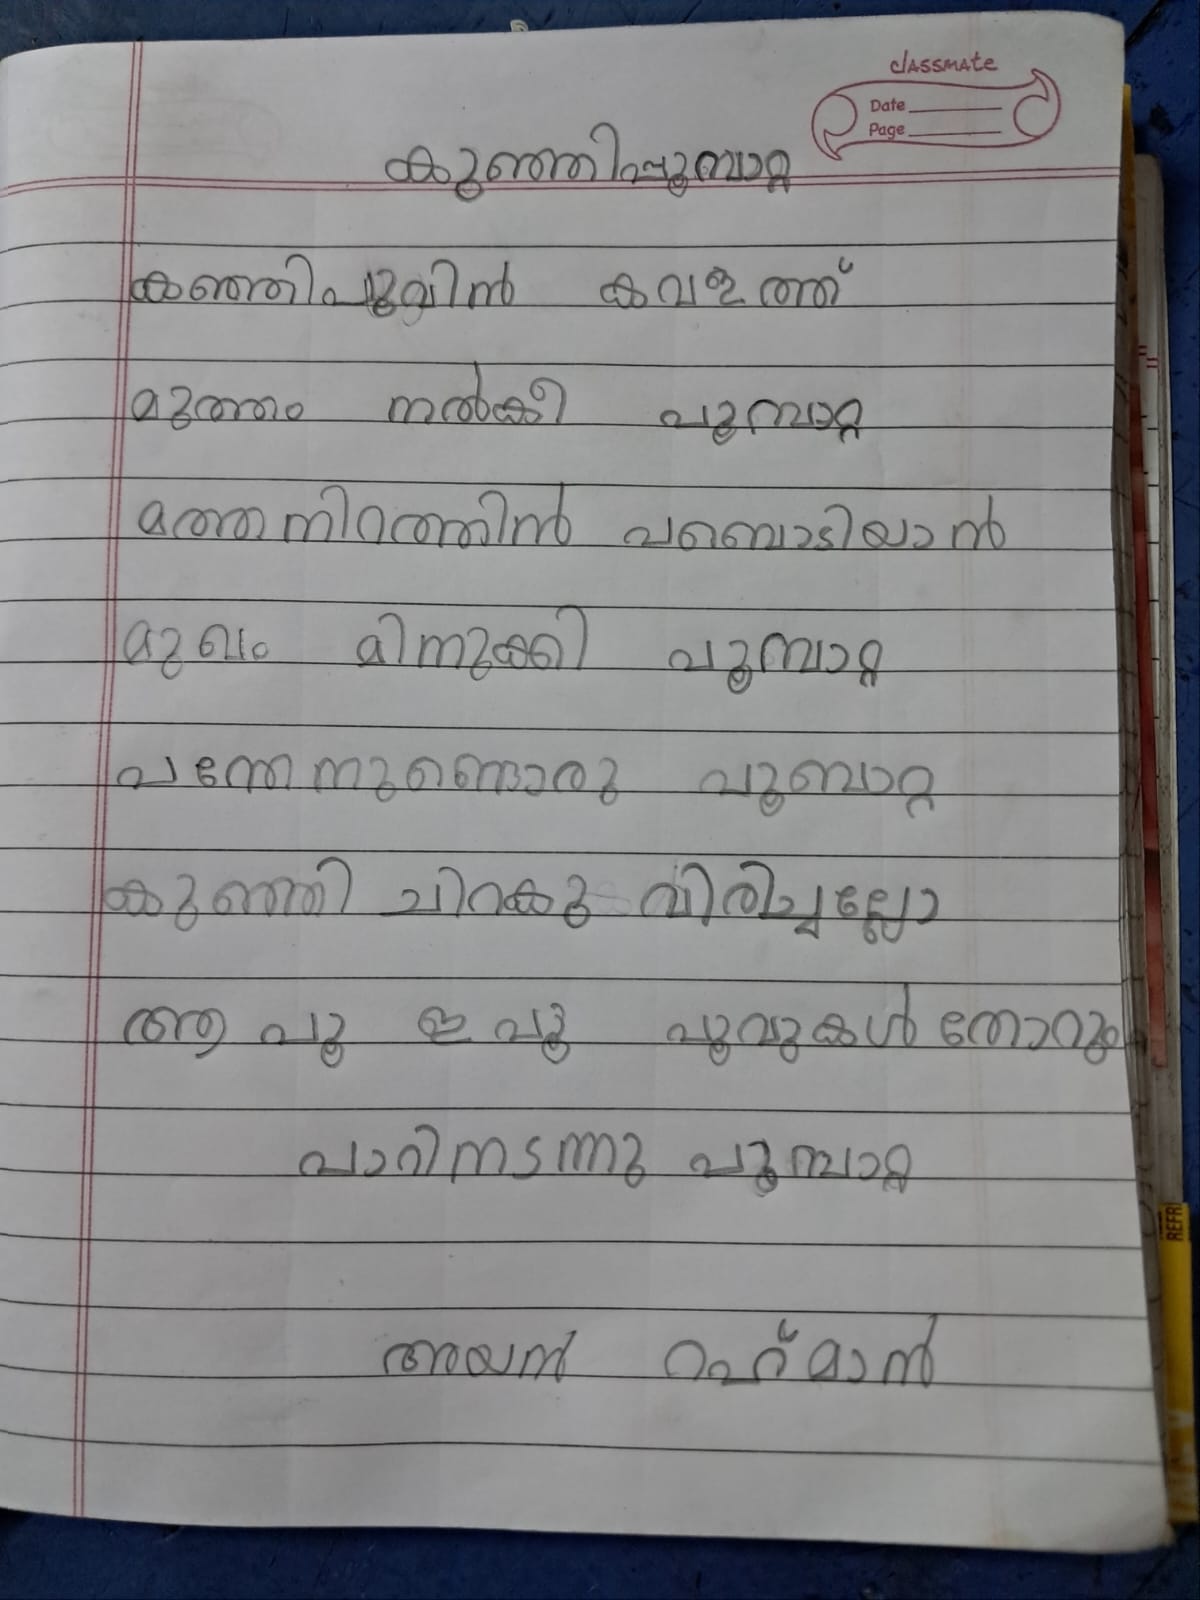 classmate
Date
Page
കുഞ്ഞിപ്പൂമ്പാറ്റ
കുഞ്ഞിപൂവിൻ കവളത്ത്
മുത്തം നൽകി പൂമ്പാറ്റ
മത്തനിറത്തിൻ പബൊടിയാൻ
മുഖം മിനുക്കി പൂമ്പാറ്റ
പന്തേനുണ്ണൊരു പൂബാറ്റ
കുഞ്ഞി ചിറകു വിരിച്ചല്ലോ
ആ പൂ ഇ പൂ പൂവുകൾ തോറും
പാറിനടന്നു പൂമ്പാറ്റ
അയൻ റഹ്മാൻ